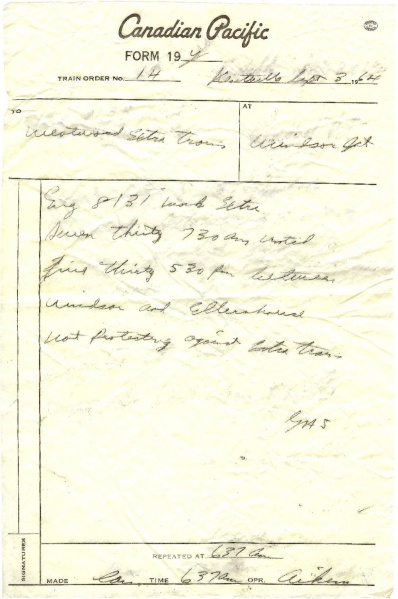 Canadian Pacific
FORM 19 Y
TRAIN ORDER No. 14 Kentville Sept 3 1964
TO AT
Westward Extra Trains Windsor Jct
Eng 8131 work Extra
Seven thirty 730 am until
five thirty 530 pm between
Windsor and Ellershouse
not Protecting against Extra Trains
SIGNATURES
REPEATED AT 637 am
MADE Com TIME 637 am OPR. Aikens